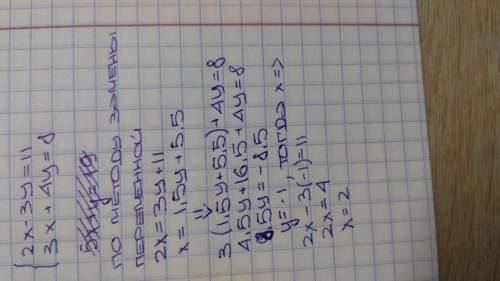 { 2x-3y=11
3x+4y=8
5x+y=19
ПО МЕТОДУ ЗАМЕНЫ
ПЕРЕМЕННОЙ
2x=3y+11
x=1,5y+5.5
3(1,5y+5,5)+4y=8
4,5y+16,5+4y=8
8,5y=-8,5
y=-1, тогда x =>
2x-3(-1)=11
2x=4
x=2